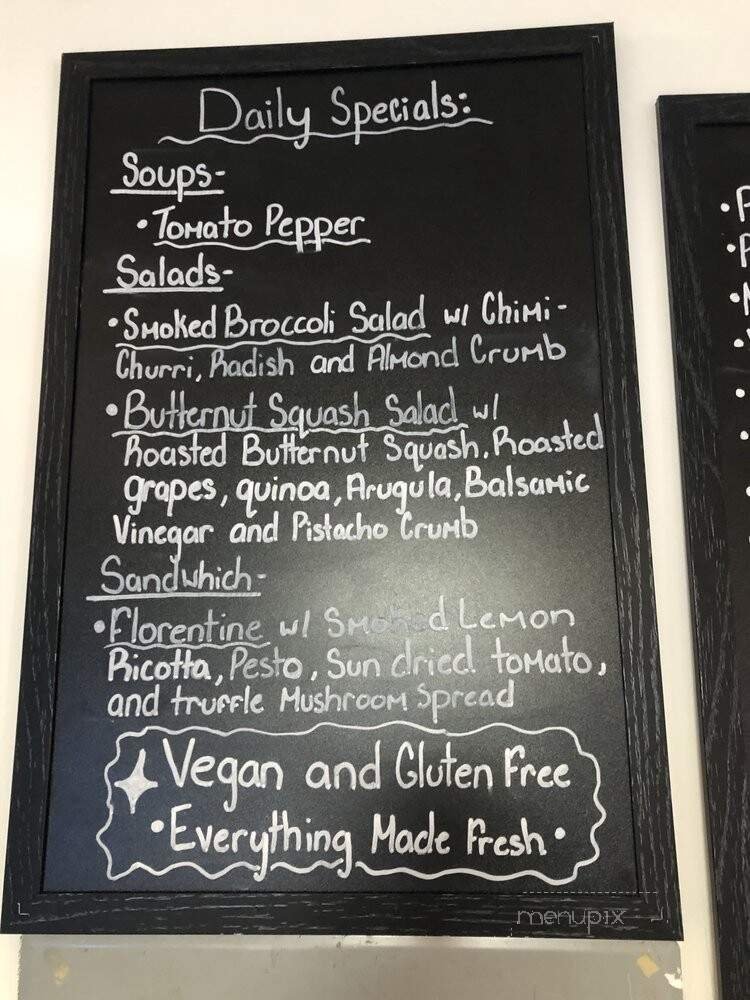 Daily Specials:
Soups-
•Tomato Pepper
Salads-
•Smoked Broccoli Salad w/ Chimi-
Churri, Radish and Almond Crumb
•Butternut Squash Salad w/
Roasted Butternut Squash, Roasted
grapes, quinoa, Arugula, Balsamic
Vinegar and Pistacho Crumb
Sandwhich-
•Florentine w/ Smoked Lemon
Ricotta, Pesto, Sun dried tomato,
and truffle Mushroom Spread
Vegan and Gluten Free
•Everything Made Fresh•
menupix